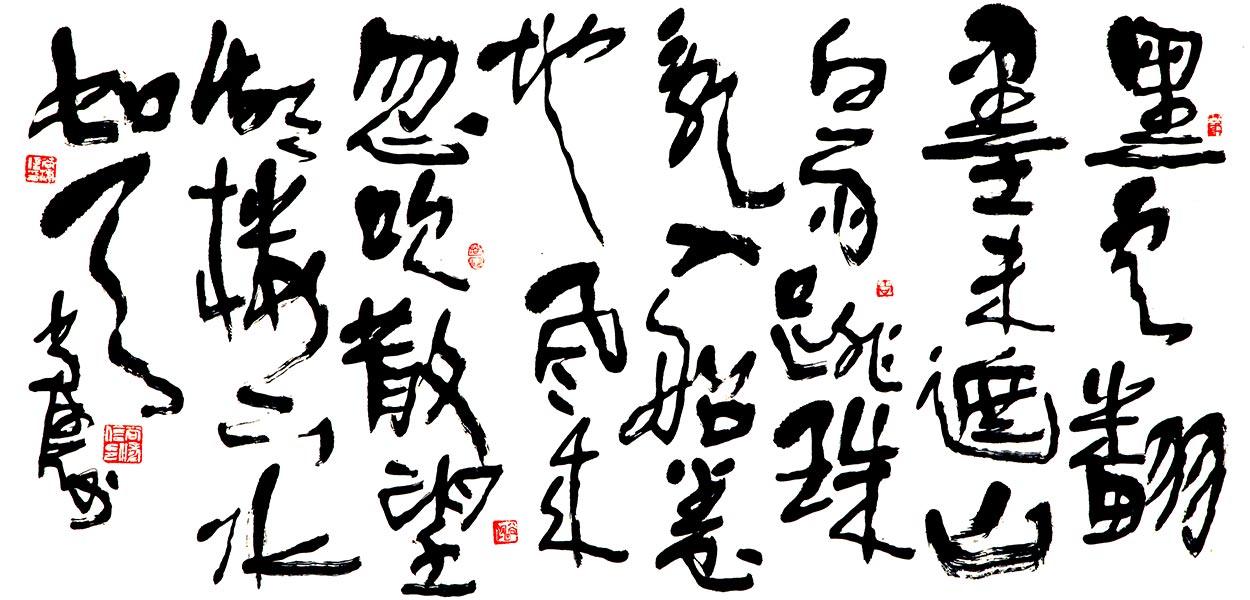 黑云翻
墨未遮山
白雨跳珠
亂入船卷
地风来
忽吹散望
湖楼下水
如天